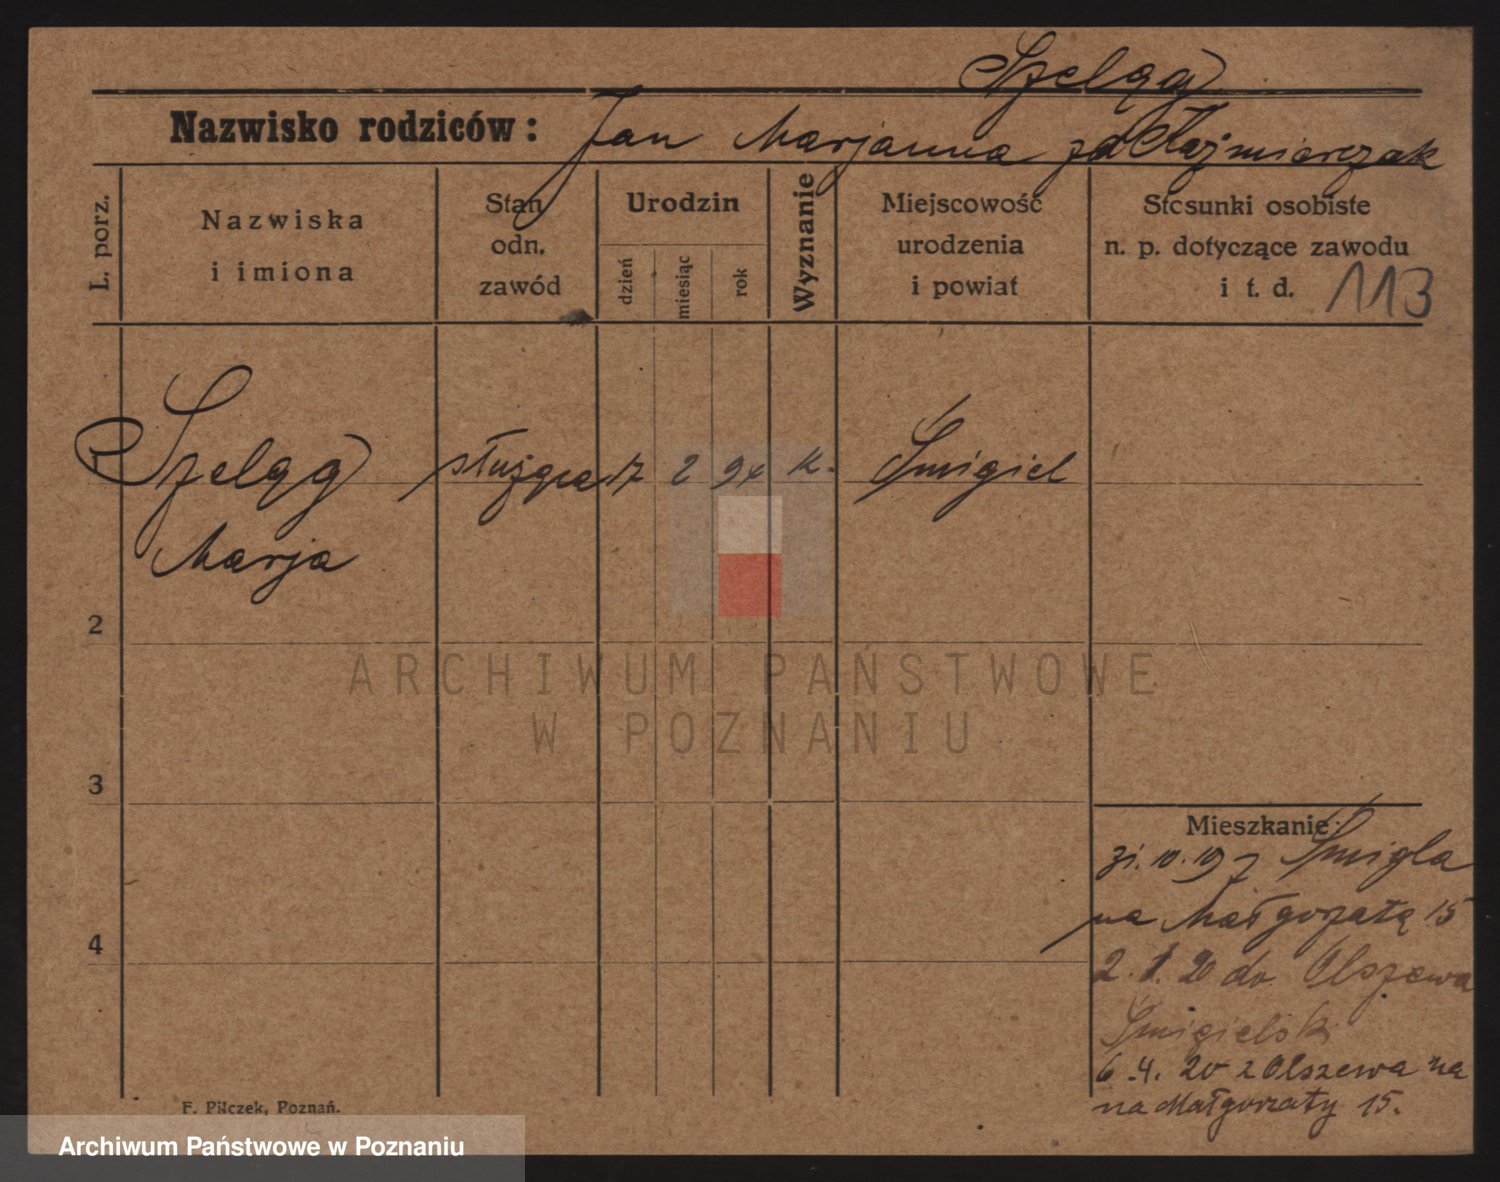 Szeląg
Nazwisko rodziców: Jan Marjanna zd Kaźmierczak
L. porz.
Nazwiska
i imiona
Stan
odn.
zawód
Urodzin
dzień
miesiąc
rok
Wyznanie
Miejscowość
urodzenia
i powiat
Stosunki osobiste
n. p. dotyczące zawodu
i t. d.
113
Szeląg służąca 17 2 k. Śmigiel
Marja
2
3
4
Mieszkanie:
10. 19 z Śmigla
na Małgorzatą 15
2. 1. 20 do Olszewa
Śmigielski
6. 4. 20 z Olszewa na
na Małgorzaty 15.
F. Pilczek, Poznań.
ARCHIWUM PAŃSTWOWE
W POZNANIU
Archiwum Państwowe w Poznaniu